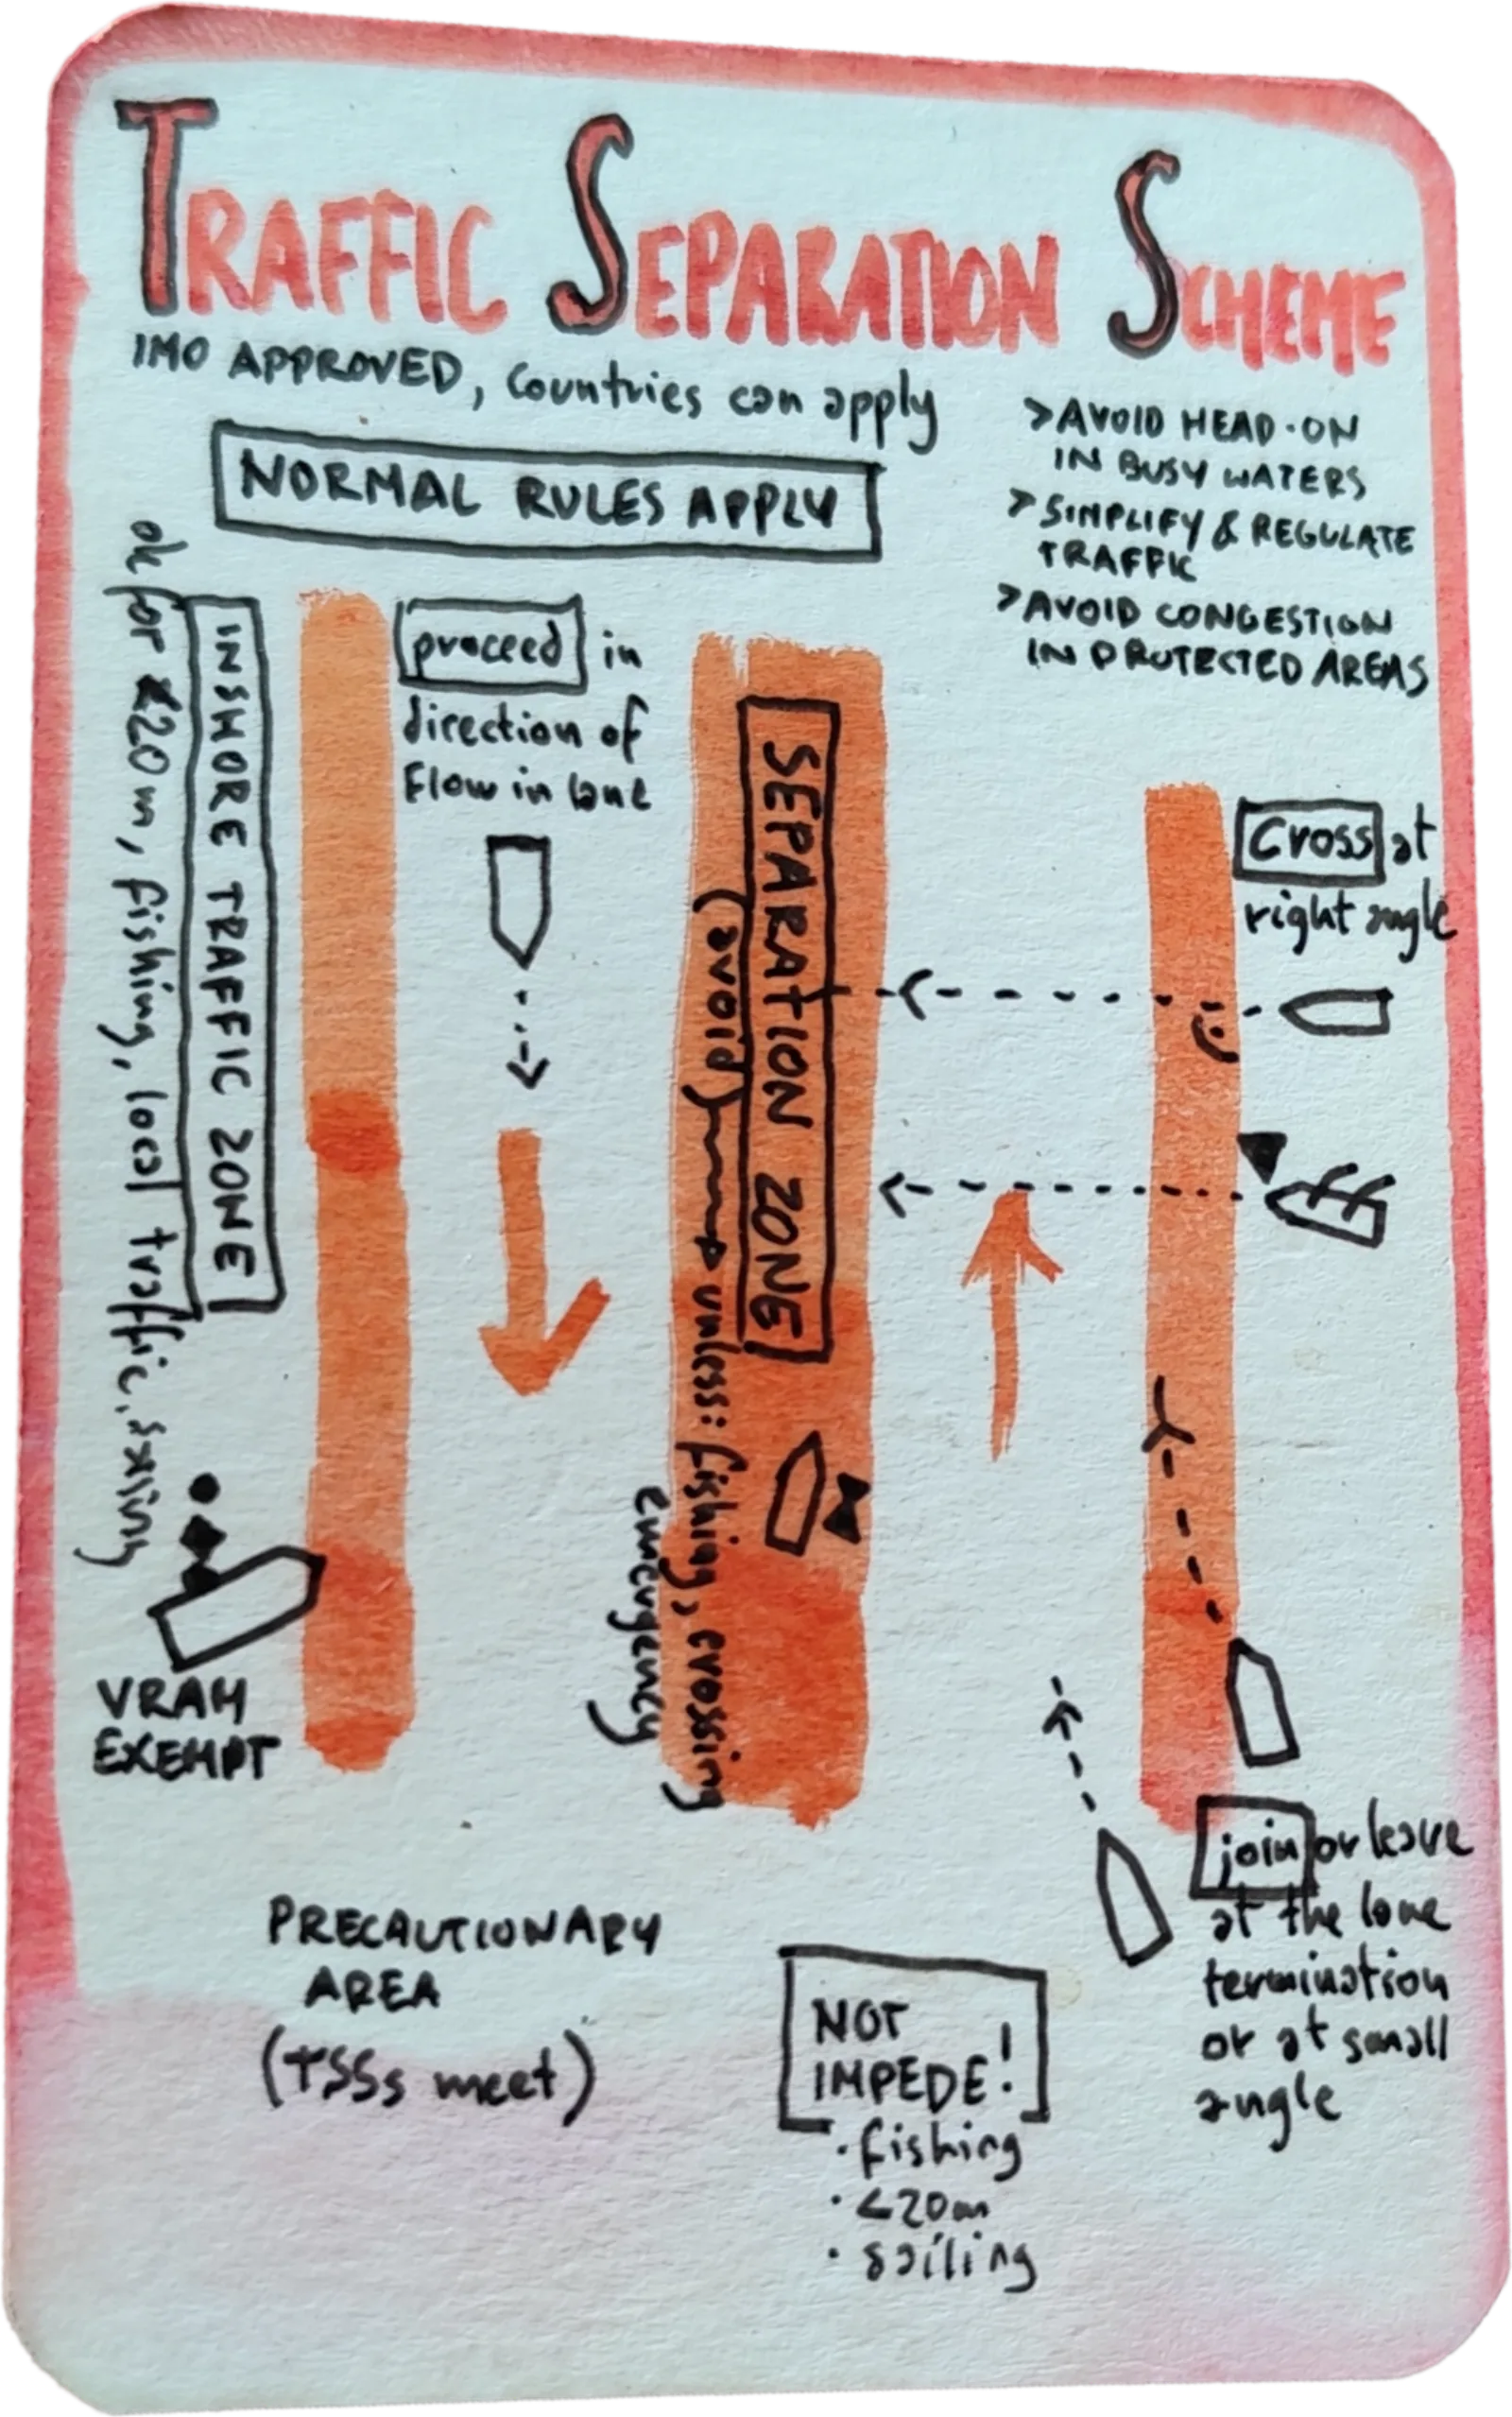 TRAFFIC SEPARATION SCHEME
IMO APPROVED, Countries can apply
NORMAL RULES APPLY
>AVOID HEAD-ON
IN BUSY WATERS
>SIMPLIFY & REGULATE
TRAFFIC
>AVOID CONGESTION
IN PROTECTED AREAS
INSHORE TRAFFIC ZONE
ok for <20m, fishing, local traffic, sailing
proceed in
direction of
flow in lane
SEPARATION ZONE
(avoid) unless: fishing, crossing
emergency
Cross at
right angle
VRAM
EXEMPT
join or leave
at the lane
termination
or at small
angle
PRECAUTIONARY
AREA
(TSSs meet)
NOT
IMPEDE!
· fishing
· <20m
· sailing